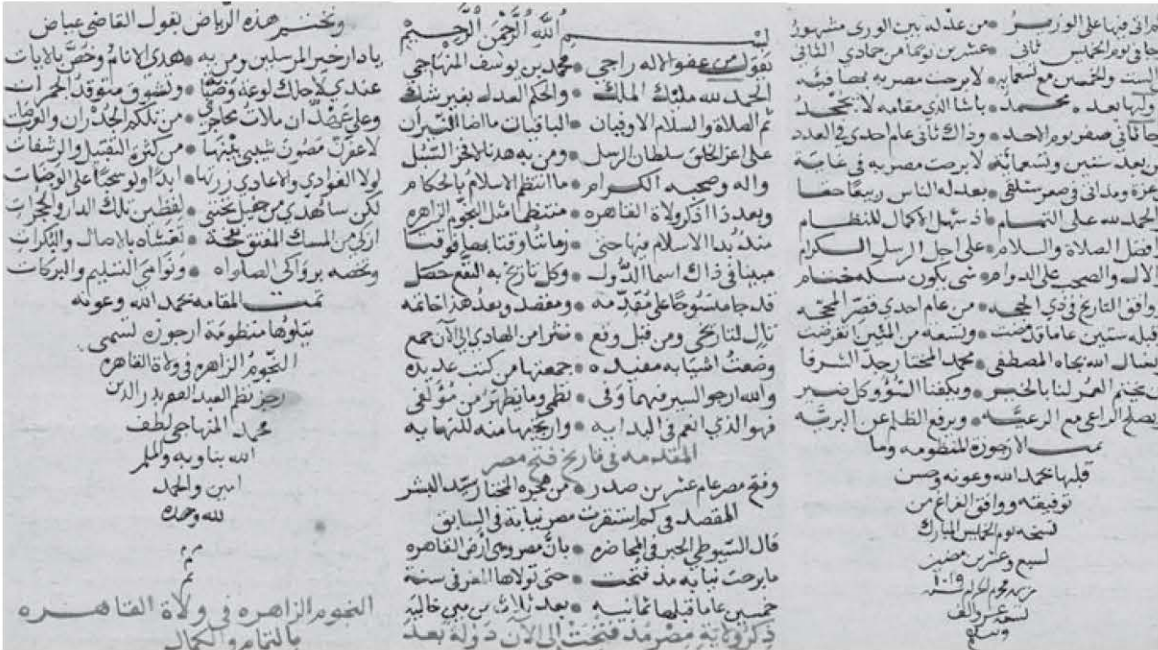 ونختم هذه الرياض بقول القاضي عياض
يا دار خير المرسلين ومن به • هدي الانام وخص بالايات
عندي لاجلك لوعة وصبابة • وتشوق متوقد الجمرات
وعلي عهد ان ملات محاجري • من تلكم الجدران والعرصات
لاعفرن مصون شيبي بينها • من كثرة التقبيل والرشفات
لولا العوادي والاعادي زرتها • ابدا ولو سحبا على الوجنات
لكن ساهدي من حفيل تحيتي • لقطين تلك الدار والحجرات
ازكي من المسك المفتق نفحة • تغشاه بالاصال والبكرات
وتخصه بزواكي الصلوات • ونوامي التسليم والبركات
تمت المقامه بحمد الله وعونه
يتلوها منظومة ارجوزه تسمى
النجوم الزاهره في ولاة القاهره
رجز نظم العبد الفقير بدر الدين
محمد المنهاجي لطف
الله بنا وبه والمسلمين
امين والحمد
لله وحده
م م
م
النجوم الزاهره في ولاة القاهره
بالتمام والكمال
بسم الله الرحمن الرحيم
يقول من عفو الاله راجي • محمد بن يوسف المنهاجي
الحمد لله مليك الملك • والحكم العدل بغير شك
ثم الصلاة والسلام الاوفيان • الباقيات ما اضا النيران
على اعز الخلق سلطان الرسل • ومن به هدنا لافخر السبل
واله وصحبه الكرام • ما انتظم الاسلام بالحكام
وبعد ذا اذكر ولاة القاهره • منتظما مثل النجوم الزاهره
منذ بدا الاسلام فيها حتى • زماننا وقتا بها فوقتا
مبينا في ذاك اسما الدول • وكل تاريخ به النفع حصل
قد جا منسوجا على مقدمه • ومقصد وبعد هذا خاتمه
ومن قبل وقع • نثرا من الهادي الى الآن جمع
وضعت اشيا به مفيده • جمعتها من كتب عديده
والله ارجو الستر فيهما وفى • نظمي وما يظهر من مؤلفى
فهو الذي انعم في البدايه • وارتجيها منه للنهايه
المقدمه في تاريخ فتح مصر
وفتح مصر عام عشرين صدر • من هجرة المختار سيد البشر
المقصد في كم استقرت مصر نيابة في السابق
قال السيوطي الحبر في المحاضره • بان مصر وهي ارض القاهره
ما برحت نيابه مذ فتحت • حتى تولاها المعز في سنة
خمسين عاما قبلها ثمانيه • بعد ثلاث من مئي خاليه
ذكر ولاية مصر مذ فتحت الى الآن دولة بعد
من عدله بين الورى مشهور
جا في يوم الخميس ثاني • عشرين يوما من جمادي الثاني
الست والخمسين مع تسعمايه • لا برحت مصر به
وليها بعده محمد • باشا الذي مقامه لا يجحد
جا ثاني صفر يوم الاحد • وذاك ثاني عام احدى في العدد
من بعد ستين وتسعمائه • لا برحت مصر به في
بعدله الناس ربيعا
الحمد لله على التمام • اذ سهل الاكمال للنظام
افضل الصلاة والسلام • على اجل الرسل الكرام
الال والصحب على الدوام • شى يكون مسك ختام
وافق التاريخ في ذي الحجه • من عام احدي
قبله ستين عاما قد مضت • وتسعة من المئين انقرضت
نسال الله بجاه المصطفى • محمد المختار جد الشرفا
يختم العمر لنا بالخير • ويكفنا السوء وكل ضير
يصلح الراعي مع الرعيه • ويرفع الظلم عن البريه
تمت الارجوزة المنظومه وما
قبلها بحمد الله وعونه وحسن
توفيقه ووافق الفراغ من
نسخه يوم الخميس المبارك
لسبع وعشرين مضين
من شهر محرم الحرام سنة ١٠١٩
تسعة عشر والف